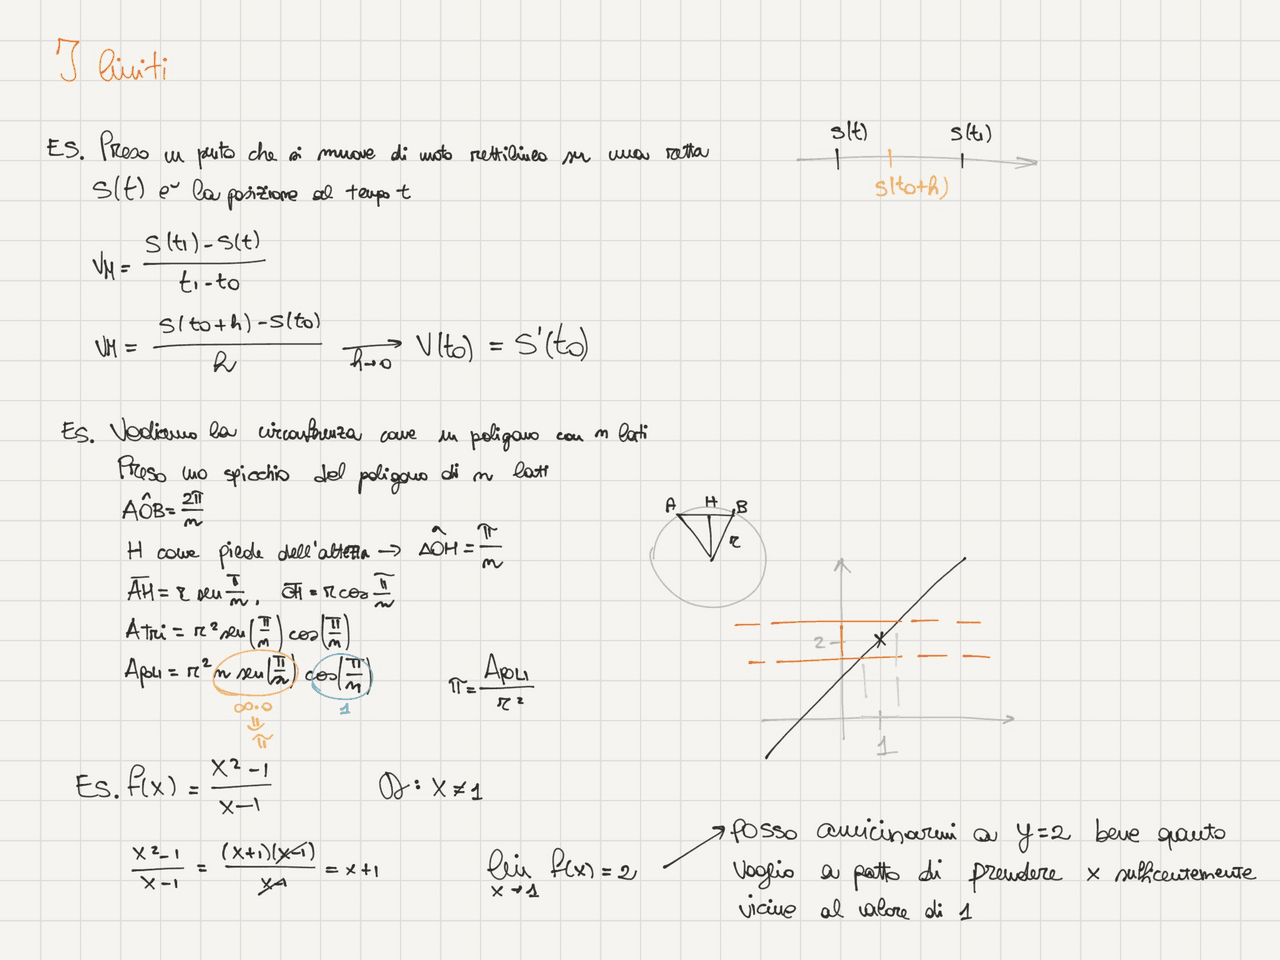 I limiti
ES. Preso un punto che si muove di moto rettilineo su una retta
S(t) e' la posizione al tempo t
S(t) S(t₁)
S(t₀+h)
V_M = (S(t₁) - S(t)) / (t₁ - t₀)
V_M = (S(t₀+h) - S(t₀)) / h →_{h→0} V(t₀) = S'(t₀)
Es. Vediamo la circonferenza come un poligono con n lati
Preso uno spicchio del poligono di n lati
AÔB = 2π/n
H come piede dell'altezza → AÔH = π/n
A H B
r
A̅H̅ = r sen π/n, O̅H̅ = r cos π/n
A_TRI = r² sen(π/n) cos(π/n)
A_POLI = r² n sen(π/n) cos(π/n)
π = A_POLI / r²
∞·0 1
=
π
2
1
Es. f(x) = (x² - 1) / (x - 1) D: x ≠ 1
(x² - 1) / (x - 1) = (x+1)(x-1) / (x-1) = x+1
lim_{x→1} f(x) = 2
Posso avvicinarmi a y=2 bene quanto
voglio a patto di prendere x sufficentemente
vicino al valore di 1